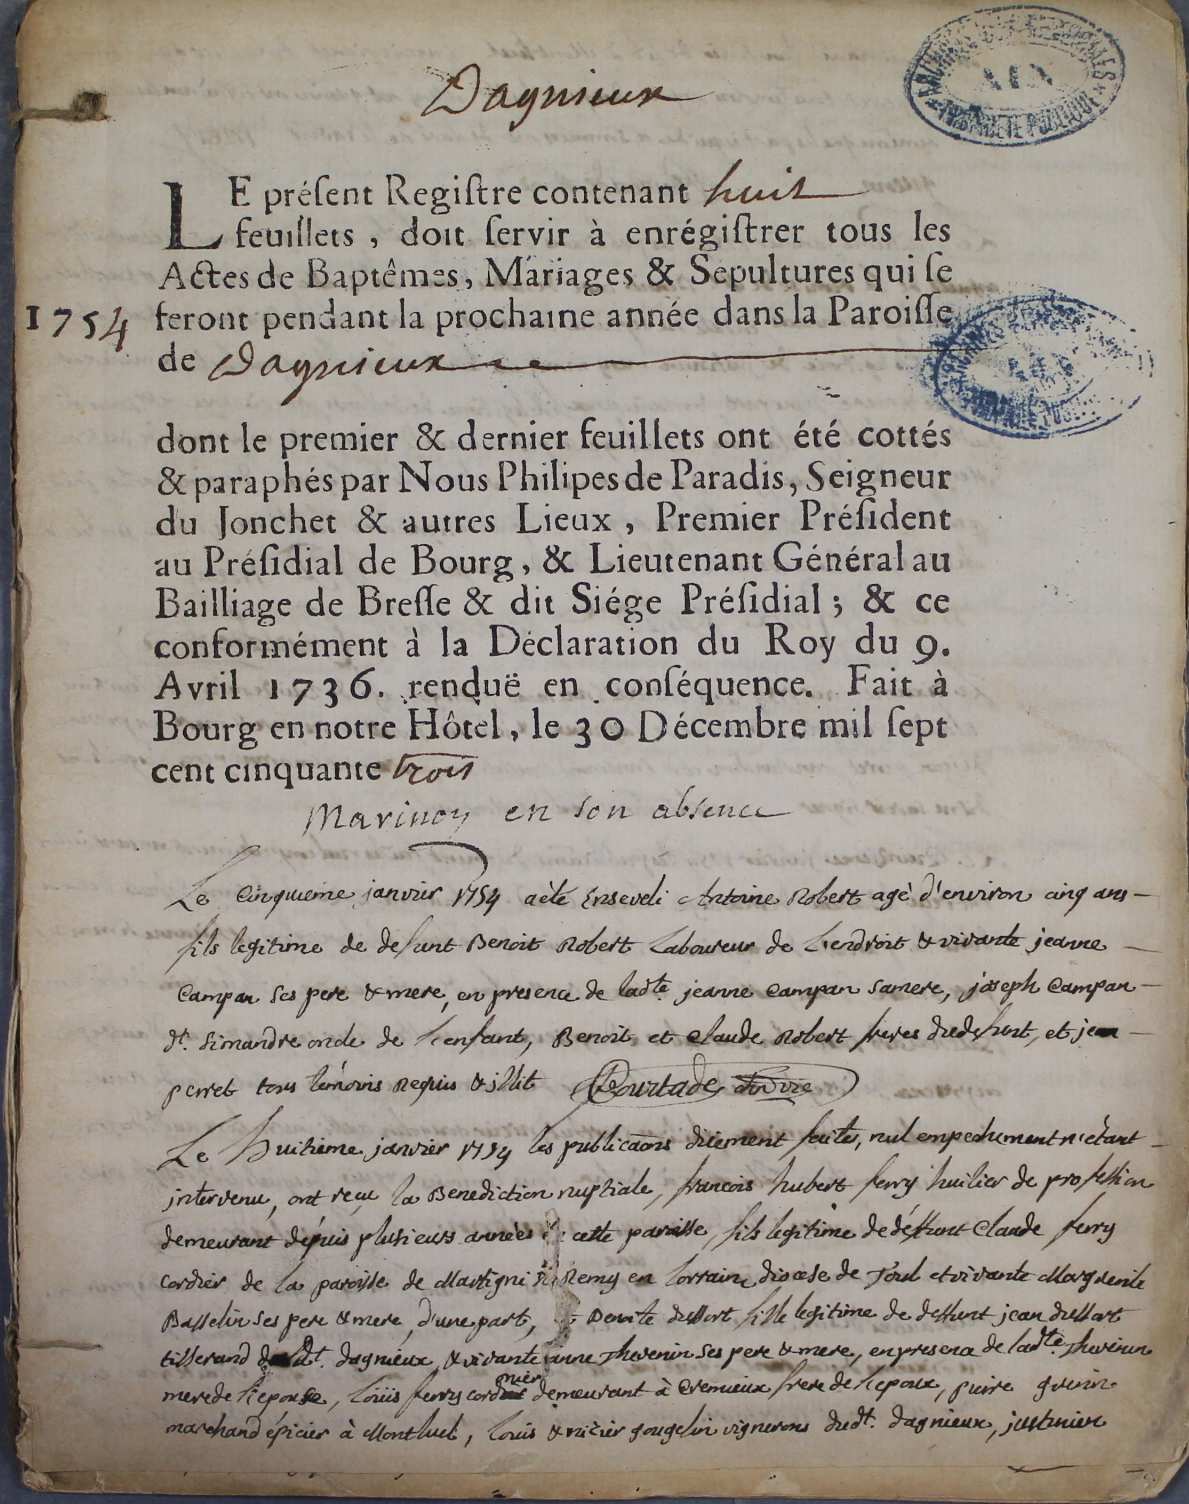 Dagnieux
ARCHIVES DÉPARTEMENTALES
AIN
PROPRIÉTÉ PUBLIQUE
LE préſent Regiſtre contenant huit
feuillets, doit ſervir à enrégiſtrer tous les
Actes de Baptêmes, Mariages & Sepultures qui ſe
1754 feront pendant la prochaine année dans la Paroiſſe
de Dagnieux
dont le premier & dernier feuillets ont été cottés
& paraphés par Nous Philipes de Paradis, Seigneur
du Jonchet & autres Lieux, Premier Préſident
au Préſidial de Bourg, & Lieutenant Général au
Bailliage de Breſſe & dit Siége Préſidial; & ce
conformément à la Déclaration du Roy du 9.
Avril 1736. renduë en conſéquence. Fait à
Bourg en notre Hôtel, le 30 Décembre mil ſept
cent cinquante trois
en son absence
Le Cinquieme janvier 1754 aété Enseveli Antoine Robert agé d'environ cinq ans
fils legitime de defunt Benoit Robert Laboureur de Lendroit & vivante jeanne
Campan Ses pere & mere, en presence de ladte. jeanne Campan Samere, joseph Campan
dt. Simandre oncle de L'enfant, Benoit et Claude Robert freres dudefunt, et jean
perret tous témoins Requis & illit
Le Huitieme janvier 1754 les publicaons duement faites, nul empechement n'étant
intervenu, ont reçu la Benediction nuptiale, françois hubert ferry huilier de profession
demeurant dépuis plusieurs années cette paroisse, fils legitime de déffunt Claude ferry
cordier de la paroisse de Martigni Remy en lorraine, diocese de Toul et vivante Marguerite
Basselin Ses pere & mere, d'une part, fille legitime de deffunt jean dussort
tisserand dudt. dagnieux, & vivante anne Thevenin Ses pere & mere, en presence de ladte. Thevenin
mere de L'epouse, Loüis ferry demeurant à Cremieux frere de L'epoux, pierre
marchand épicier à Montluel, Loüis & gougelin vignerons dudt. dagnieux,